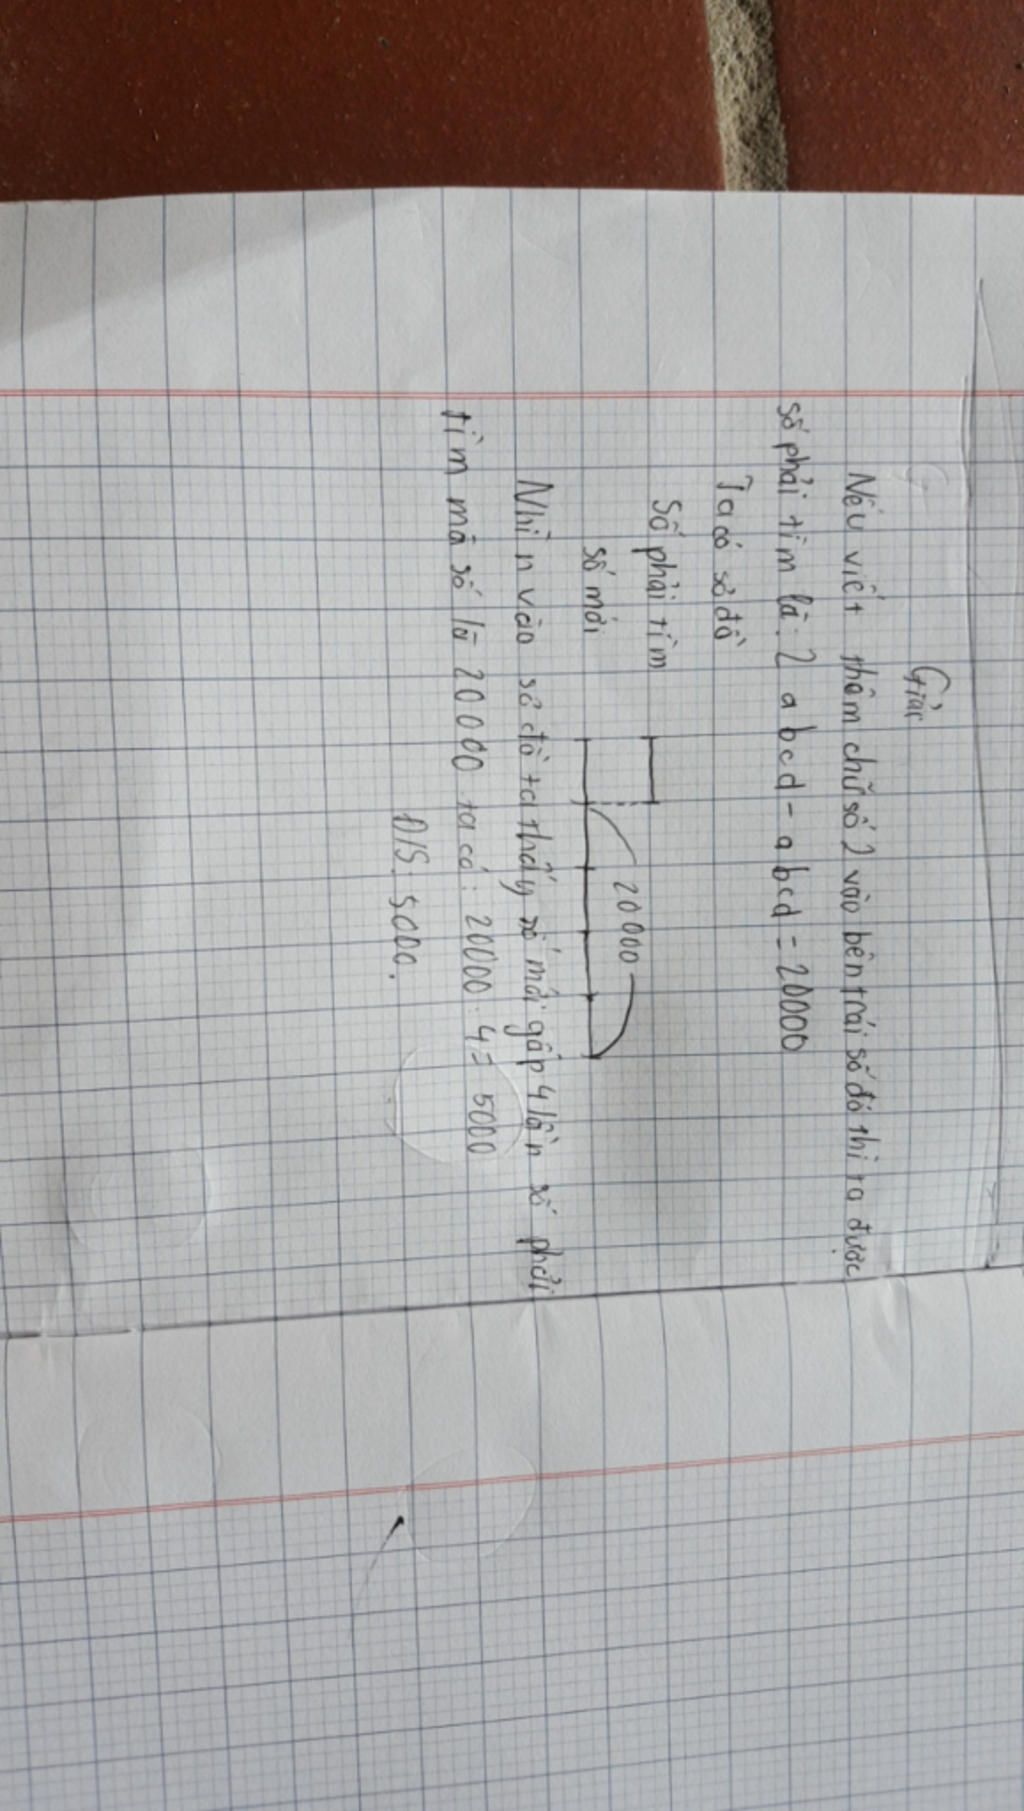 Giải
Nếu viết thêm chữ số 2 vào bên trái số đó thì ra được
số phải tìm là: 2 abcd - abcd = 20000
Ta có sơ đồ
Số phải tìm
20000
số mới
Nhìn vào sơ đồ ta thấy số mới gấp 4 lần số phải
tìm mà số là 20000 ta có: 20000 : 4 = 5000
Đ/S: 5000.